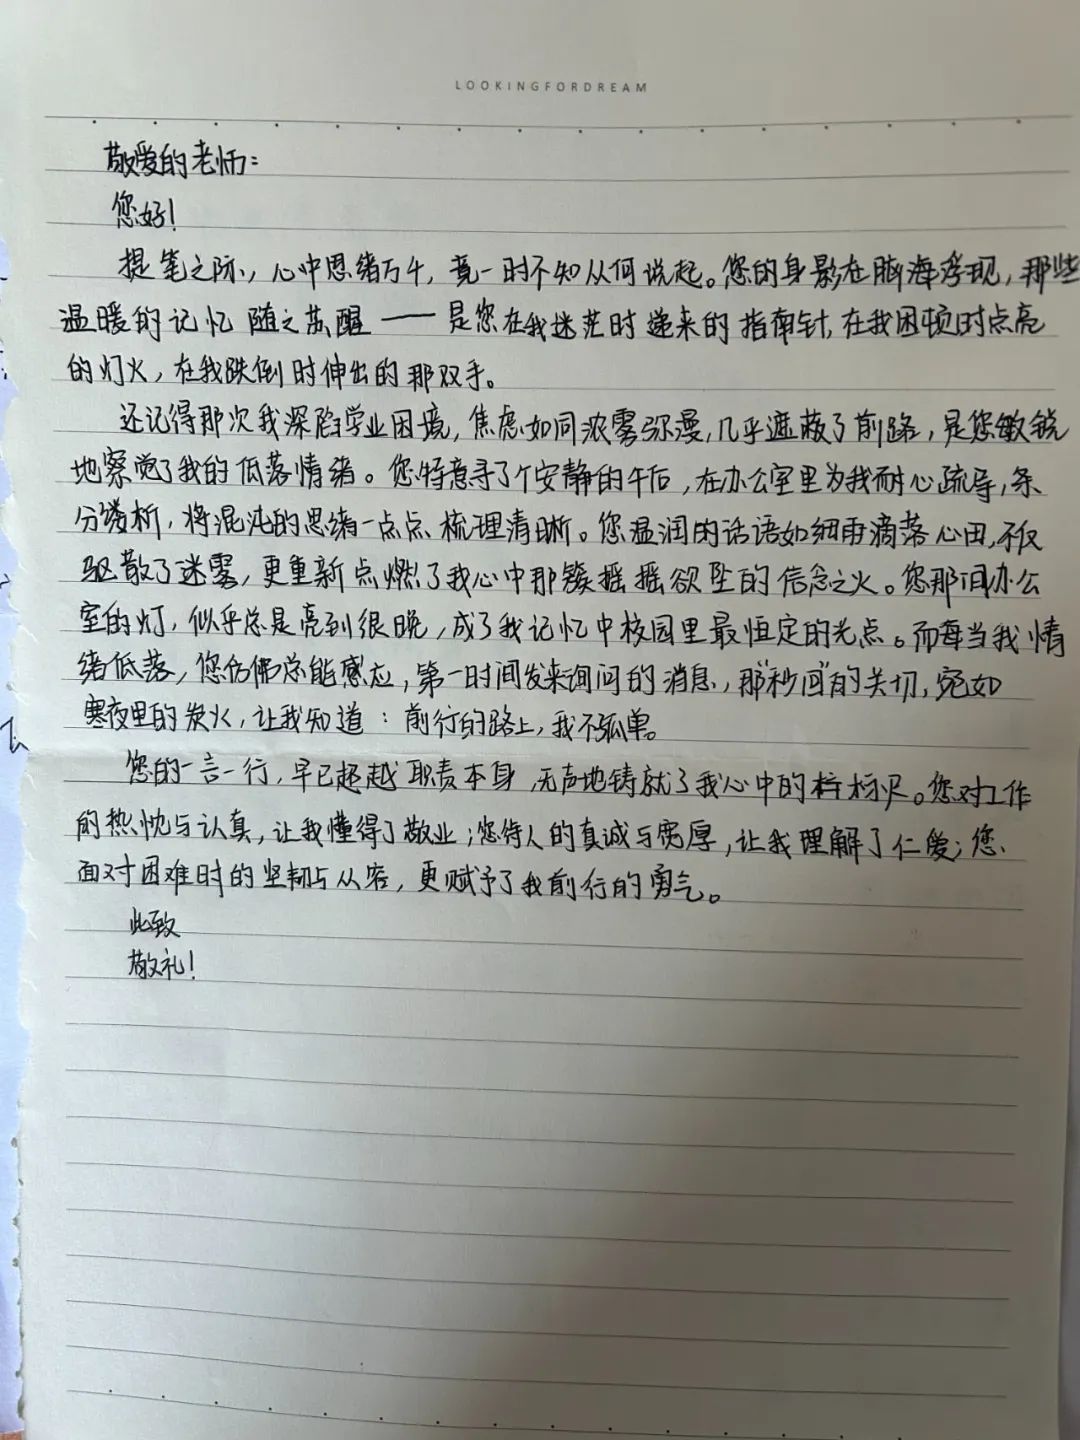 LOOKINGFORDREAM
敬爱的老师：
您好！
提笔之际，心中思绪万千，竟一时不知从何说起。您的身影在脑海浮现，那些
温暖的记忆随之苏醒——是您在我迷茫时递来的指南针，在我困顿时点亮
的灯火，在我跌倒时伸出的那双手。
还记得那次我深陷学业困境，焦虑如同浓雾弥漫，几乎遮蔽了前路，是您敏锐
地察觉了我的低落情绪。您特意寻了个安静的午后，在办公室里为我耐心疏导，条
分缕析，将混沌的思绪一点点梳理清晰。您温润的话语如细雨滴落心田，不仅
驱散了迷雾，更重新点燃了我心中那簇摇摇欲坠的信念之火。您那间办公
室的灯，似乎总是亮到很晚，成了我记忆中校园里最恒定的光点。而每当我情
绪低落，您仿佛总能感应，第一时间发来询问的消息，那“秒回”的关切，宛如
寒夜里的炭火，让我知道：前行的路上，我不孤单。
您的一言一行，早已超越职责本身，无声地铸就了我心中的标尺。您对工作
的热忱与认真，让我懂得了敬业；您待人的真诚与宽厚，让我理解了仁爱；您
面对困难时的坚韧与从容，更赋予了我前行的勇气。
此致
敬礼！